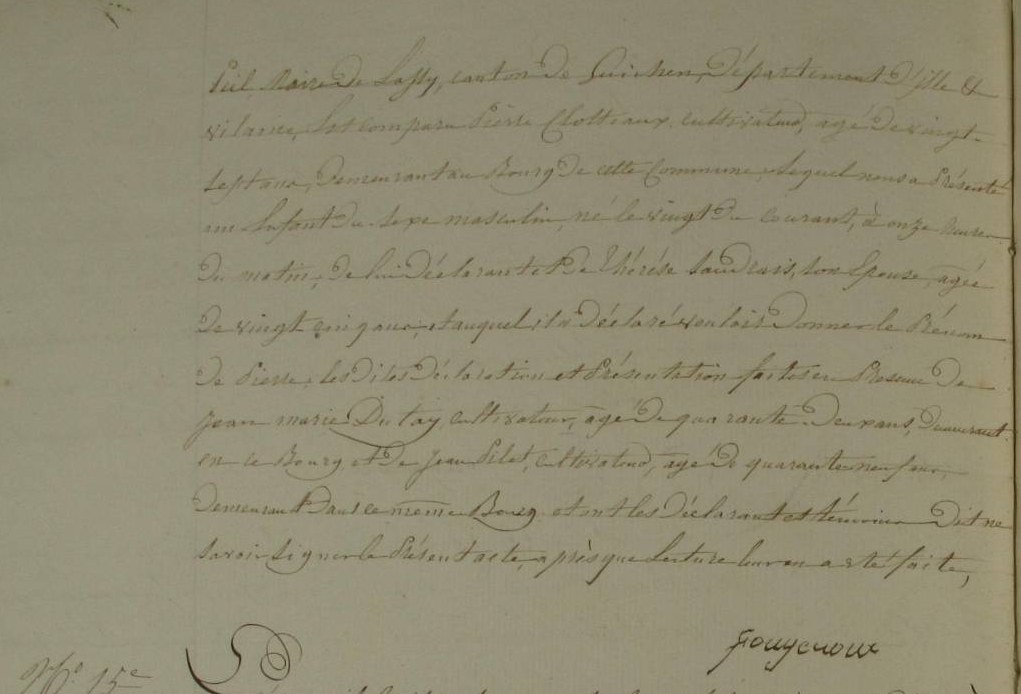 Maire de Lassy, canton de Guichen, Département d'Ille &
vilaine, Est comparu Pierre Clotteaux cultivateur, agé de vingt
Sept ans, Demeurant au Bourg de cette Commune, Lequel nous a Présenté
un Enfant du Sexe masculin, né le vingt du Courant, à onze heures
du matin, De lui Déclarant et De Thérése Saudrais, son Epouse, agée
De vingt cinq ans, et auquel il a Déclaré vouloir Donner le Prénom
De Pierre, lesDites Déclaration et Présentation faites en Presence De
Jean marie Dutay, cultivateur, agé De quarante Deux ans, Demeurant
en ce Bourg et De Jean Pilet, Cultivateur, agé De quarante neuf ans,
Demeurant Dans ce même Bourg et ont les Déclarant et témoins Dit ne
Savoir Signer le Présent acte, après que Lecture leur en a été faite,
fougeroux
N° 15e